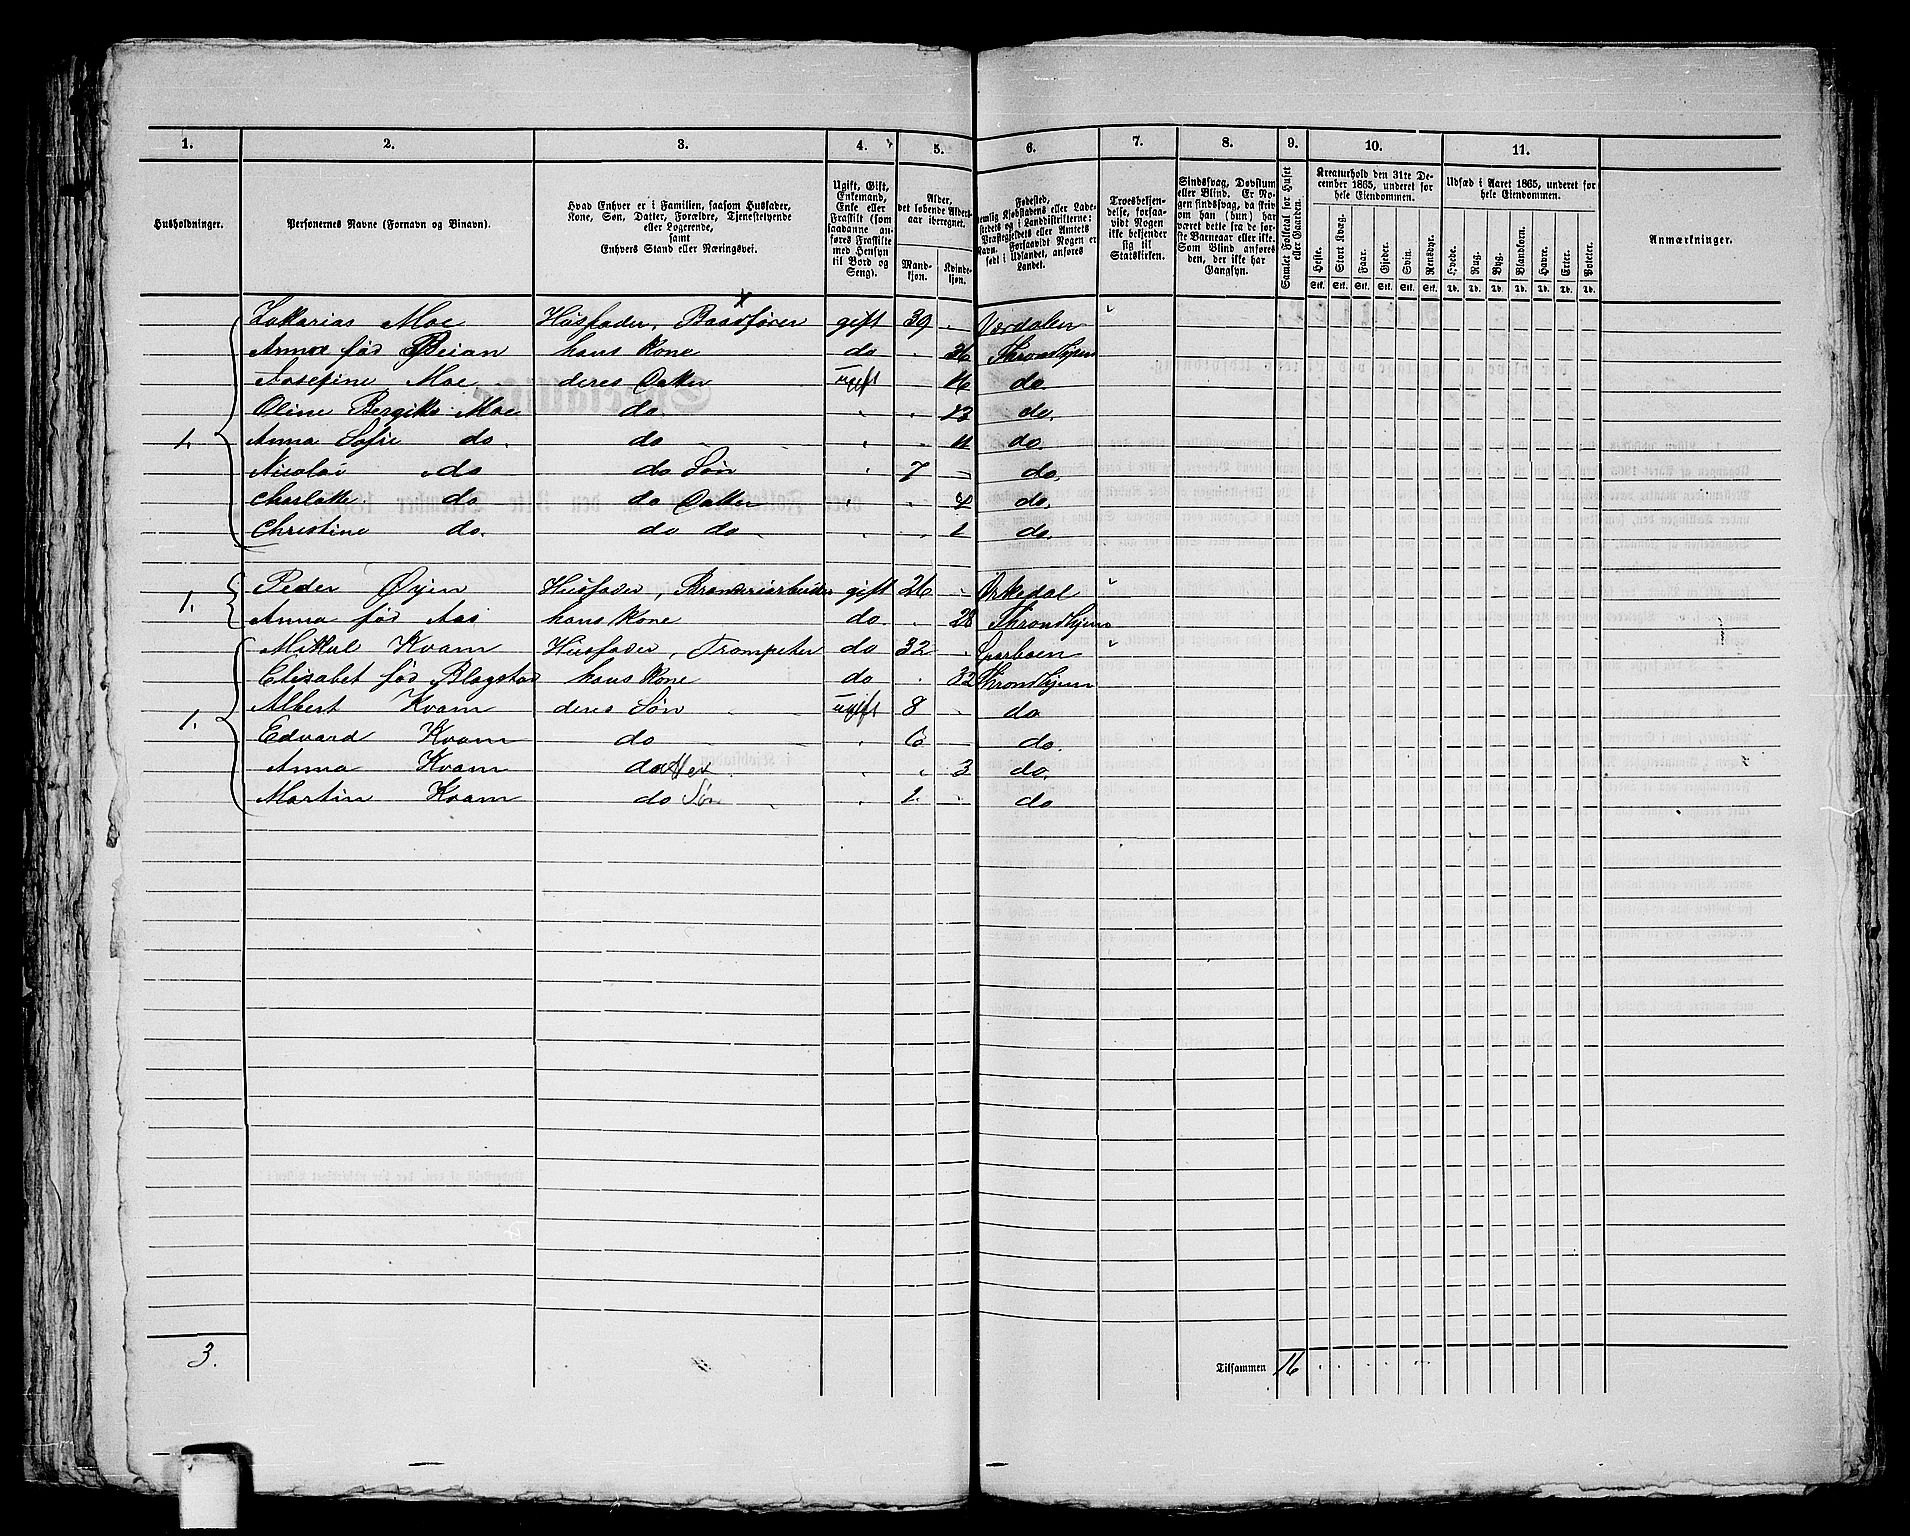 1. 2. 3. 4. 5. 6. 7. 8. 9. 10. 11.
Husholdninger.
Personernes Navne (Fornavn og Binavn).
Hvad Enhver er i Familien, saasom Husfader,
Kone, Søn, Datter, Forældre, Tjenestetyende
eller Logerende,
samt
Enhvers Stand eller Næringsvei.
Ugift, Gift,
Enkemand,
Enke eller
Fraskilt (som
saadanne an-
føres Fraskilte
med Hensyn
til Bord og
Seng).
Alder,
det løbende Alders-
aar iberegnet.
Mand-
kjøn.
Kvinde-
kjøn.
Fødested,
nemlig Kjøbstadens eller Lade-
stedets og i Landdistrikterne:
Præstegjeldets eller Amtets
Navn. Forsaavidt Nogen er
født i Udlandet, anføres
Landet.
Troesbekjen-
delse, forsaa-
vidt Nogen
ikke bekjender
sig til
Statskirken.
Sindssvag, Døvstum
eller Blind. Er No-
gen sindssvag, da skriv
om han (hun) har
været dette fra de før-
ste Barneaar eller ikke.
Som Blind anføres
den, der ikke har
Gangsyn.
Samlet Folketal for Huset
eller Gaarden.
Kreaturhold den 31te De-
cember 1865, underet for
hele Eiendommen.
Heste. Stort Kvæg. Faar. Gjeder. Svin. Rensdyr.
Stk. Stk. Stk. Stk. Stk. Stk.
Udsæd i Aaret 1865, underet for
hele Eiendommen.
Hvede. Rug. Byg. Blandkorn. Havre. Erter. Poteter.
Td. Td. Td. Td. Td. Td. Td.
Anmærkninger.
Zakarias Moe Husfader, Baadfører gift 39 Værdalen "
Anna fød Beian hans Kone do 36 Throndhjem
Josefine Moe deres Datter ugift 16 do.
Oline Bergitte Moe do 13 do.
1. Anna Sofie do. do 11 do
Nicolai do do Søn 7 do.
Charlotte do do Datter do.
Christine do. do do 1 do.
1. Peder Øyen Husfader, Brænderiarbeider gift 26 Orkedal "
Anna fød Aas hans Kone do. 28 Throndhjem
Mikal Kvam Husfader, Trompeter do 32 Sparboen "
Elisabet fød Blogstad hans Kone do 32 Throndhjem
1. Albert Kvam deres Søn ugift 8 do
Edvard Kvam do 6 do.
Anna Kvam datter 3 do.
Martin Kvam do Søn 1 do
3. Tilsammen 16